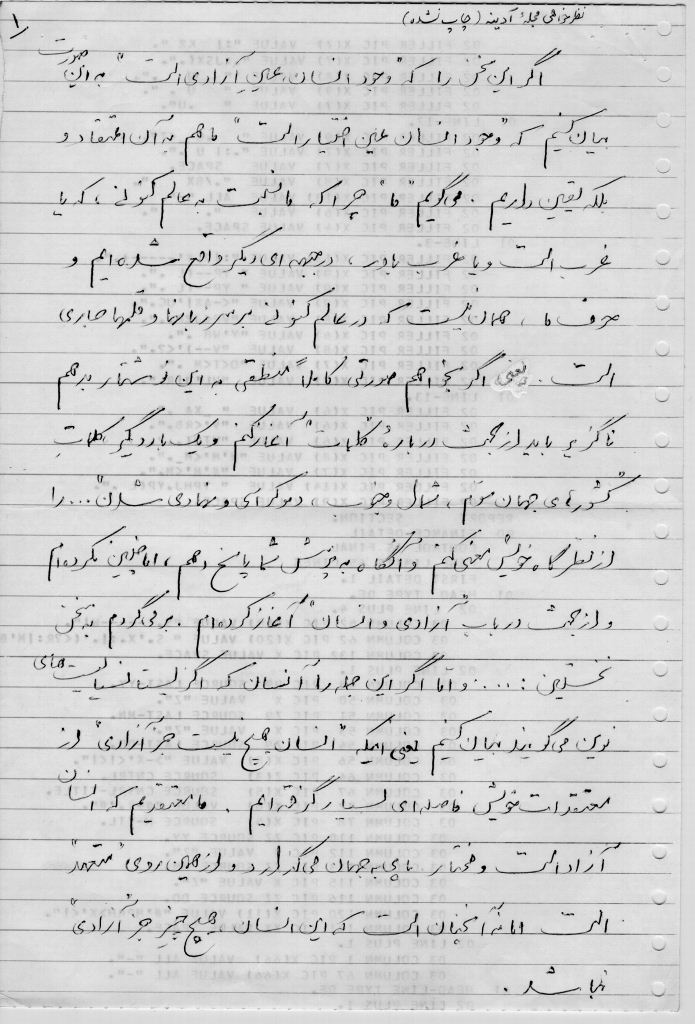 نظرخواهی مجلهٔ آدینه (چاپ نشده)
۱
اگر این سخن را که "وجود انسان، عینِ آزادی است" به این صورت
بیان کنیم که "وجود انسان عین اختیار است" ما هم به آن اعتقاد و
بلکه یقین داریم. می‌گویم "ما" چرا که ما نسبت به عالم کنونی، که یا
غرب است و یا غرب باور، در جبهه‌ای دیگر واقع شده‌ایم و
حرف ما، همان نیست که در عالم کنونی بر سر زبانها و قلمها جاری
است. یعنی اگر بخواهم صورتی کاملاً منطقی به این نوشتار بدهم
ناگزیر باید از بحث دربارهٔ "کلمات" آغاز کنم و یک بار دیگر، کلماتِ
"کشورهای جهان سوم، شمال و جنوب، دموکراسی و نهادی شدن"... را
از نظرگاه خویش معنی کنم و آنگاه به پرسش شما پاسخ دهم، اما چنین نکرده‌ام
و از بحث در باب "آزادی و انسان" آغاز کرده‌ام. برمی‌گردم به سخن
نخستین: .... و اما اگر این جمله را آنسان که اگزیستانسیالیست‌های
نوین می‌گویند بیان کنیم یعنی اینکه "انسان هیچ نیست جز آزادی" از
معتقدات خویش فاصله‌ای بسیار گرفته‌ایم. ما معتقدیم که انسان
آزاد است و مختار پای به جهان می‌گذارد و از همین روی "متعهد"
است اما نه آنچنان است که این انسان "هیچ چیز جز آزادی"
نباشد.